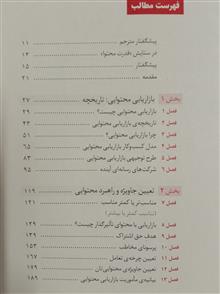 فهرست مطالب
پیشگفتار مترجم ۱۱
در ستایش «قدرت محتوا» ۱۳
پیشگفتار ۱۵
مقدمه ۲۱
بخش ۱ بازاریابی محتوایی: تاریخچه ۲۷
فصل ۱ بازاریابی محتوایی چیست؟ ۲۹
فصل ۲ تاریخچه‌ی بازاریابی محتوایی ۴۳
فصل ۳ چرا بازاریابی محتوایی؟ ۵۱
فصل ۴ مدل کسب‌وکار بازاریابی محتوایی ۶۵
فصل ۵ طرح توجیهی بازاریابی محتوایی ۸۳
فصل ۶ شرکت‌های رسانه‌ای آینده ۹۵
بخش ۲ تعیین جاویژه و راهبرد محتوایی ۱۱۹
فصل ۷ مناسب‌تر یا کمتر مناسب ۱۲۱
(مناسب کمتر یا بیشتر)
فصل ۸ بازاریابی با محتوای تأثیرگذار چیست؟ ۱۲۹
فصل ۹ هدف حق اشتراک ۱۳۹
فصل ۱۰ پرسونای مخاطب ۱۵۳
فصل ۱۱ تعیین چرخه‌ی تعامل
فصل ۱۲ تعیین جاویژه‌ی محتوایی‌تان ۱۷۹
فصل ۱۳ بیانیه‌ی مأموریت بازاریابی محتوایی ۱۸۹